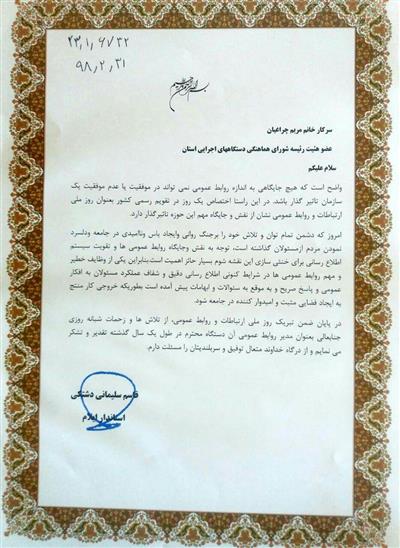 ۲۳,۱,۶۷۳۲
۹۸,۲,۳۱
سرکار خانم مریم چراغیان
عضو هئیت رئیسه شورای هماهنگی دستگاههای اجرایی استان
سلام علیکم
واضح است که هیچ جایگاهی به اندازه روابط عمومی نمی تواند در موفقیت یا عدم موفقیت یک
سازمان تاثیر گذار باشد. در این راستا اختصاص یک روز در تقویم رسمی کشور بعنوان روز ملی
ارتباطات و روابط عمومی نشان از نقش و جایگاه مهم این حوزه تاثیرگذار دارد.
امروز که دشمن تمام توان و تلاش خود را برجنگ روانی وایجاد یاس وناامیدی در جامعه ودلسرد
نمودن مردم ازمسئولان گذاشته است، توجه به نقش وجایگاه روابط عمومی ها و تقویت سیستم
اطلاع رسانی برای خنثی سازی این نقشه شوم بسیار حائز اهمیت است.یکی از وظایف خطیر
و مهم روابط عمومی ها در شرایط کنونی اطلاع رسانی دقیق و شفاف عملکرد مسئولان به افکار
عمومی و پاسخ صریح و به موقع به سئوالات و ابهامات پیش آمده است بطوریکه خروجی کار منتج
به ایجاد فضایی مثبت و امیدوار کننده در جامعه شود.
در پایان ضمن تبریک روز ملی ارتباطات و روابط عمومی، از تلاش ها و زحمات شبانه روزی
جنابعالی بعنوان مدیر روابط عمومی آن دستگاه محترم در طول یک سال گذشته تقدیر و تشکر
می نمایم و از درگاه خداوند متعال توفیق و سربلندیتان را مسئلت دارم.
قاسم سلیمانی دشتکی
استاندار ایلام